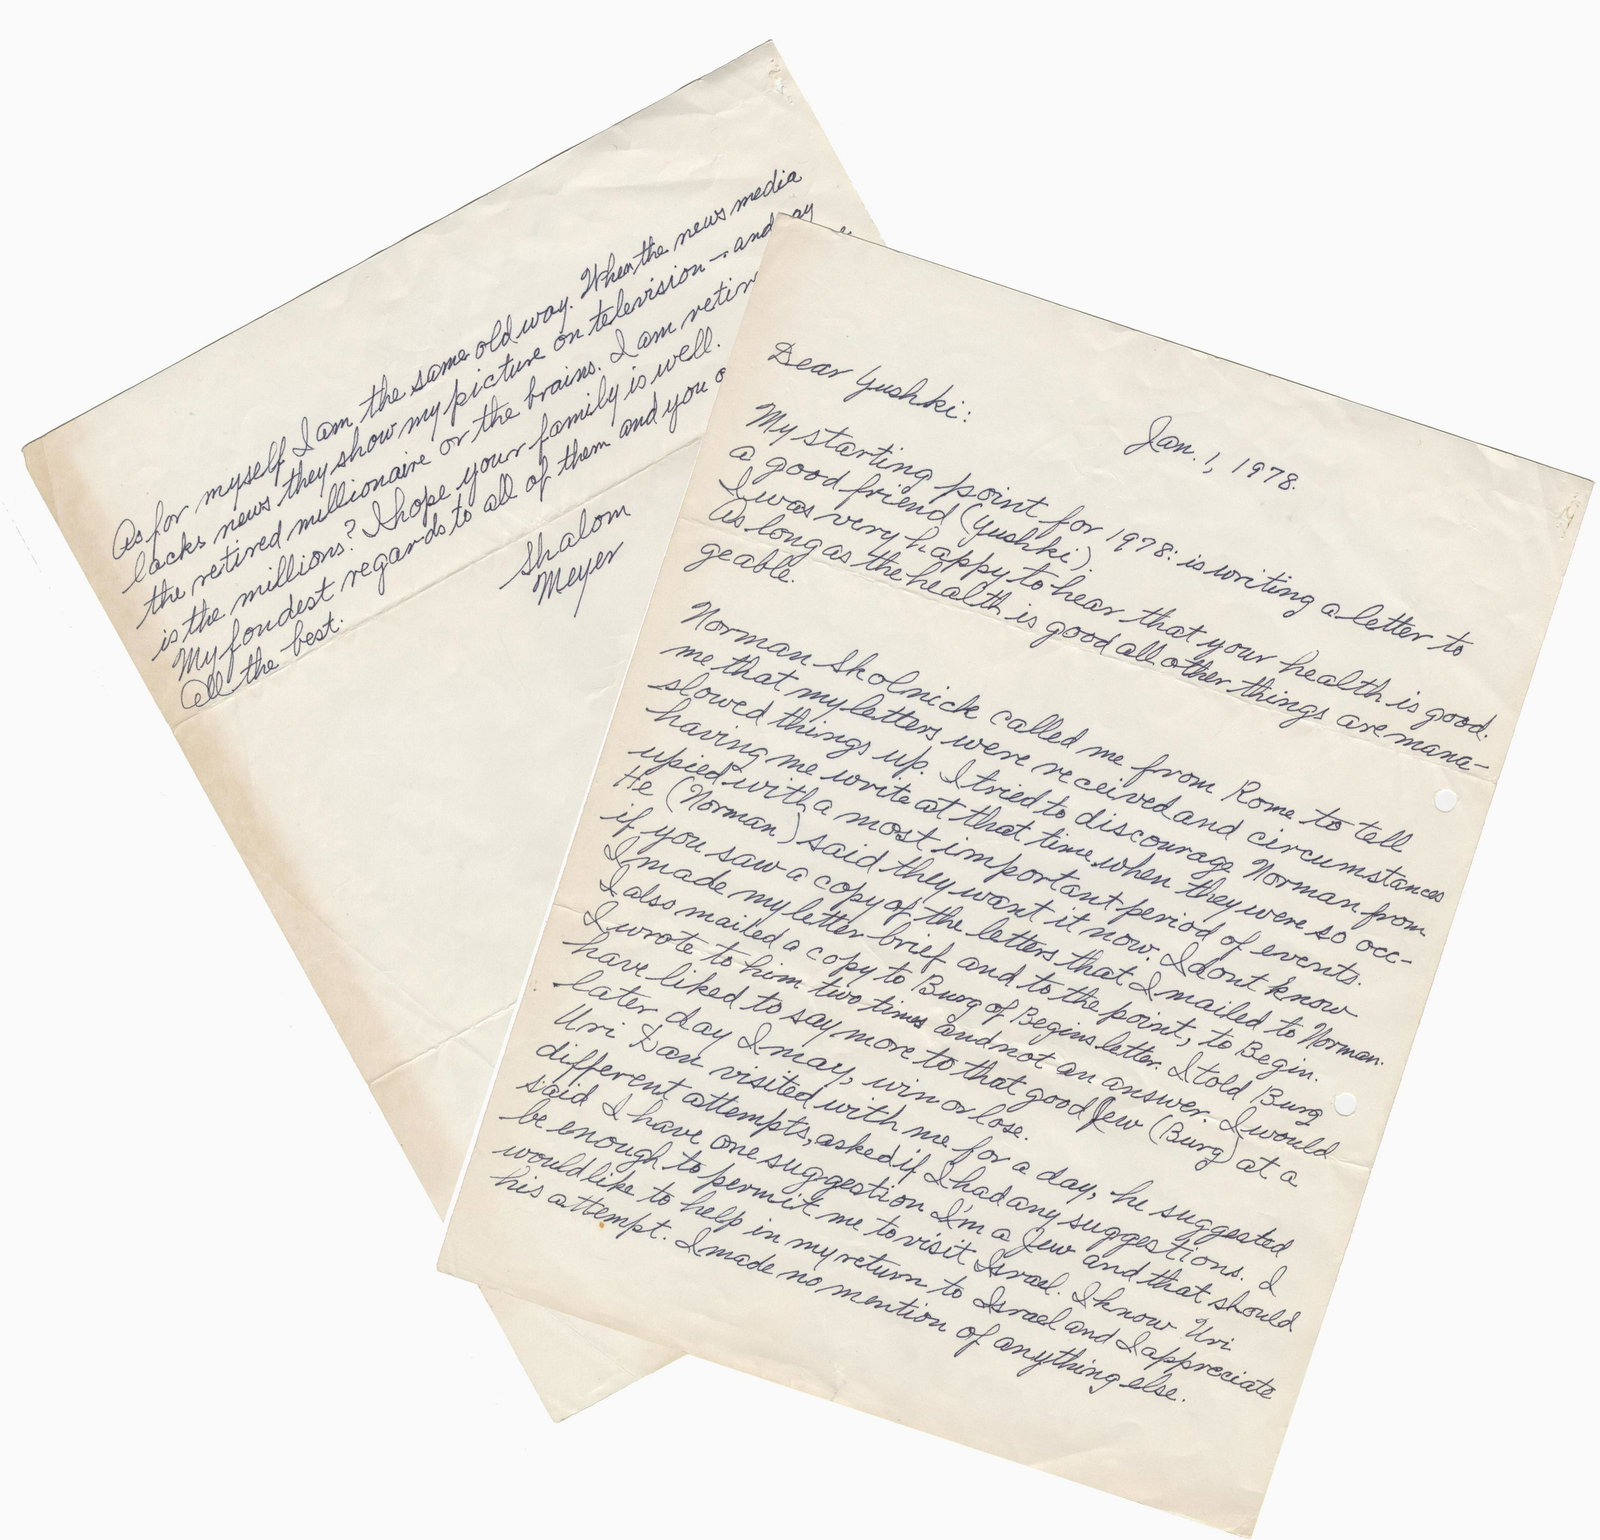 Dear Yushki:
Jan. 1, 1978.
My starting point for 1978: is writing a letter to
a good friend (Yushki).
I was very happy to hear that your health is good.
As long as the health is good all other things are mana-
geable.
Norman Skolnick called me from Rome to tell
me that my letters were received and circumstances
slowed things up. I tried to discourage Norman from
having me write at that time when they were so occ-
upied with a most important period of events.
He (Norman) said they want it now. I dont know
if you saw a copy of the letters that I mailed to Norman.
I made my letter brief and to the point, to Begin.
I also mailed a copy to Burg of Begins letter. I told Burg
I wrote to him two times and not an answer. I would
have liked to say more to that good Jew (Burg) at a
later day I may, win or lose.
Uri Dan visited with me for a day, he suggested
different attempts, asked if I had any suggestions. I
said I have one suggestion I'm a Jew and that should
be enough to permit me to visit Israel. I know Uri
would like to help in my return to Israel and I appreciate
his attempt. I made no mention of anything else.
As for myself I am the same old way. When the news media
lacks news they show my picture on television — and say
the retired millionaire or the brains. I am
is the millions? I hope your family is well.
My fondest regards to all of them and you
all the best.
Shalom
Meyer